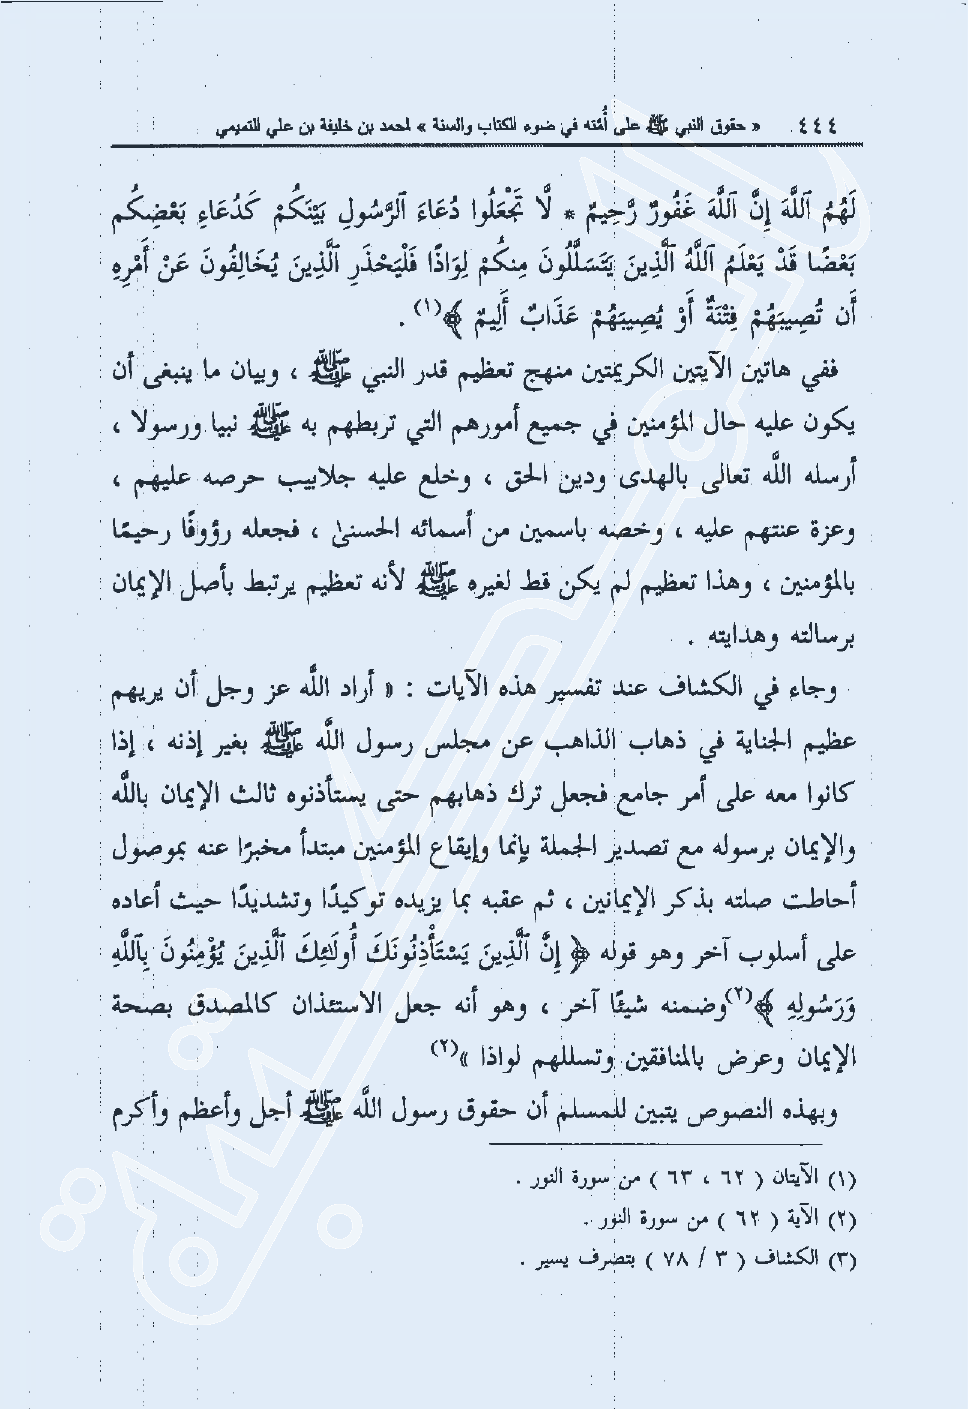 ٤٤٤ « حقوق النبي ﷺ على أُمته في ضوء الكتاب والسنة » لمحمد بن خليفة بن علي التميمي
لَهُمُ ٱللَّهَ إِنَّ ٱللَّهَ غَفُورٌ رَّحِيمٌ * لَّا تَجْعَلُوا دُعَاءَ ٱلرَّسُولِ بَيْنَكُمْ كَدُعَاءِ بَعْضِكُم
بَعْضًا قَدْ يَعْلَمُ ٱللَّهُ ٱلَّذِينَ يَتَسَلَّلُونَ مِنكُمْ لِوَاذًا فَلْيَحْذَرِ ٱلَّذِينَ يُخَالِفُونَ عَنْ أَمْرِهِ
أَن تُصِيبَهُمْ فِتْنَةٌ أَوْ يُصِيبَهُمْ عَذَابٌ أَلِيمٌ ﴾(١) .
ففي هاتين الآيتين الكريمتين منهج تعظيم قدر النبي ﷺ ، وبيان ما ينبغى أن
يكون عليه حال المؤمنين في جميع أمورهم التي تربطهم به ﷺ نبيا ورسولا ،
أرسله اللَّه تعالى بالهدى ودين الحق ، وخلع عليه جلابيب حرصه عليهم ،
وعزة عنتهم عليه ، وخصه باسمين من أسمائه الحسنىٰ ، فجعله رؤوفًا رحيمًا
بالمؤمنين ، وهذا تعظيم لم يكن قط لغيره ﷺ لأنه تعظيم يرتبط بأصل الإيمان
برسالته وهدايته .
وجاء في الكشاف عند تفسير هذه الآيات : « أراد اللَّه عز وجل أن يريهم
عظيم الجناية في ذهاب الذاهب عن مجلس رسول اللَّه ﷺ بغير إذنه ، إذا
كانوا معه على أمر جامع فجعل ترك ذهابهم حتى يستأذنوه ثالث الإيمان باللَّه
والإيمان برسوله مع تصدير الجملة بإنما وإيقاع المؤمنين مبتدأ مخبرًا عنه بموصول
أحاطت صلته بذكر الإيمانين ، ثم عقبه بما يزيده توكيدًا وتشديدًا حيث أعاده
على أسلوب آخر وهو قوله ﴿ إِنَّ ٱلَّذِينَ يَسْتَأْذِنُونَكَ أُولَٰئِكَ ٱلَّذِينَ يُؤْمِنُونَ بِٱللَّهِ
وَرَسُولِهِ ﴾(٢) وضمنه شيئًا آخر ، وهو أنه جعل الاستئذان كالمصدق بصحة
الإيمان وعرض بالمنافقين وتسللهم لواذا »(٢)
وبهذه النصوص يتبين للمسلم أن حقوق رسول اللَّه ﷺ أجل وأعظم وأكرم
(١) الآيتان ( ٦٢ ، ٦٣ ) من سورة النور .
(٢) الآية ( ٦٢ ) من سورة النور .
(٣) الكشاف ( ٣ / ٧٨ ) بتصرف يسير .